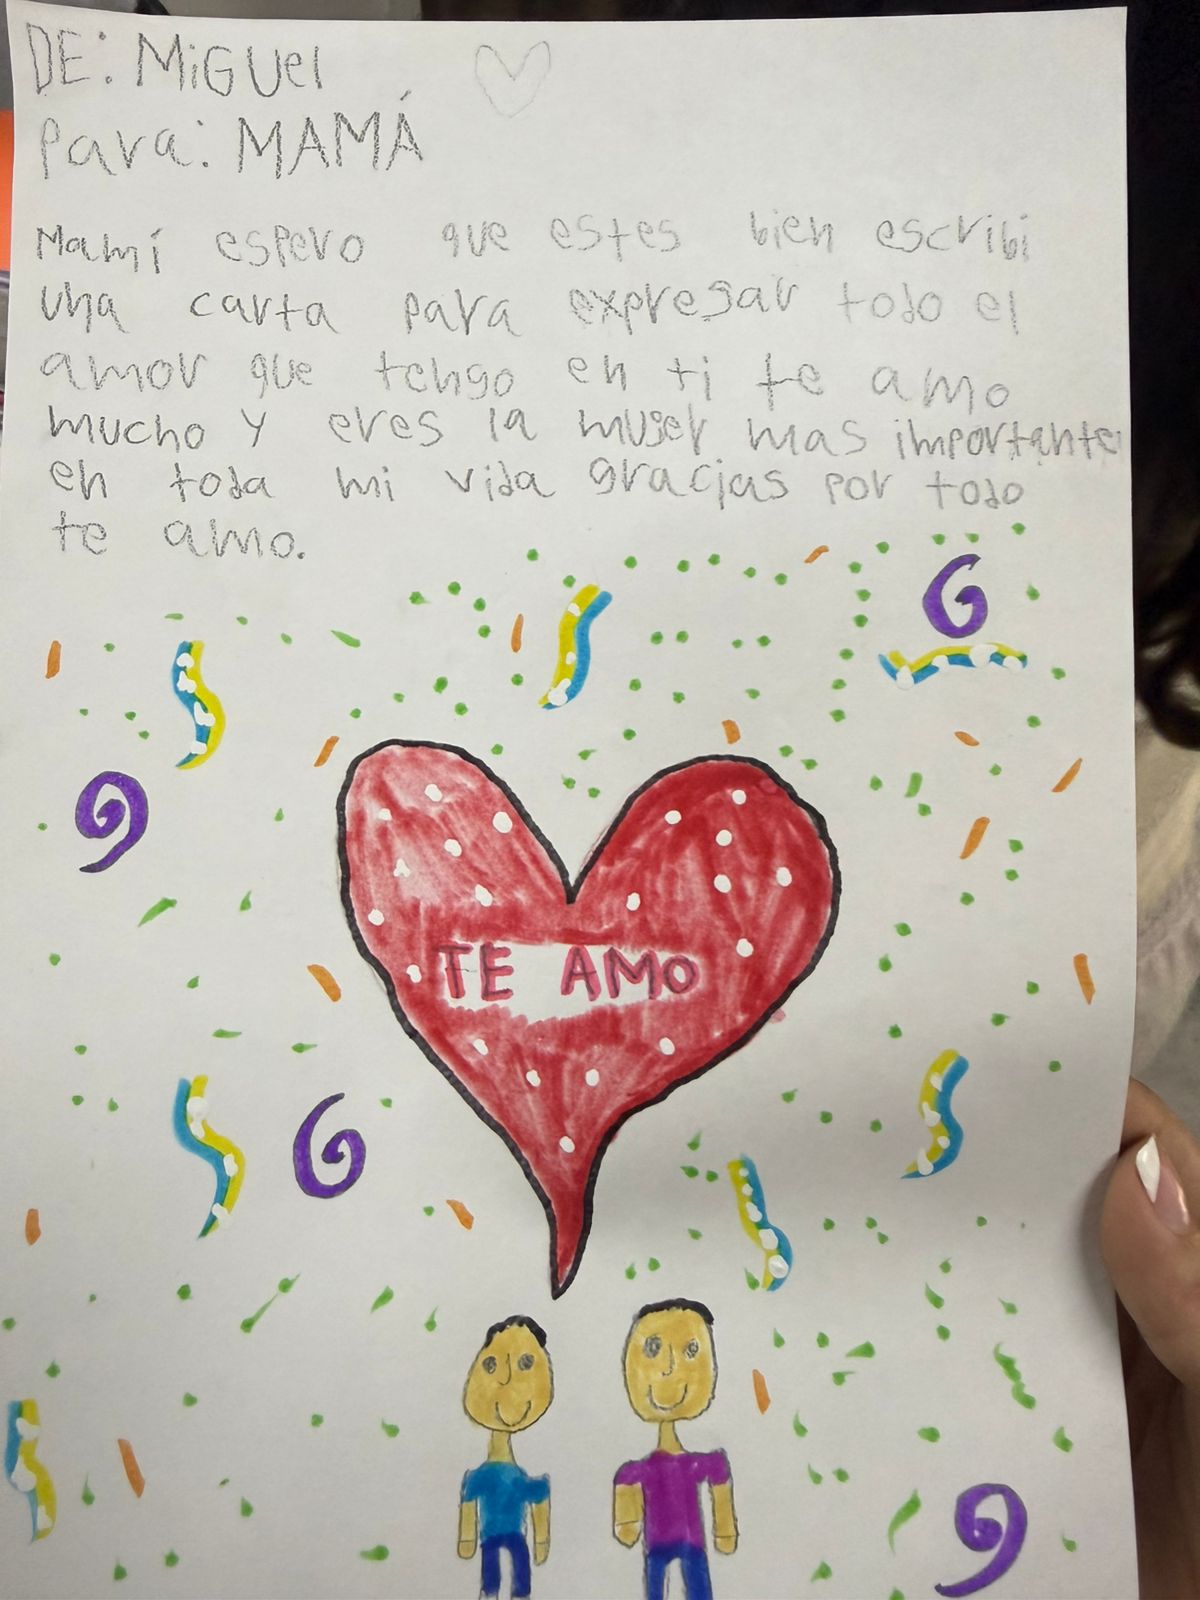 DE: MiGUel
Para: MAMÁ
Mamí espero que estes bien escribi
una carta para expresar todo el
amor que tengo en ti te amo
mucho y eres la muger mas importante
en toda mi vida gracias por todo
te amo.
TE AMO